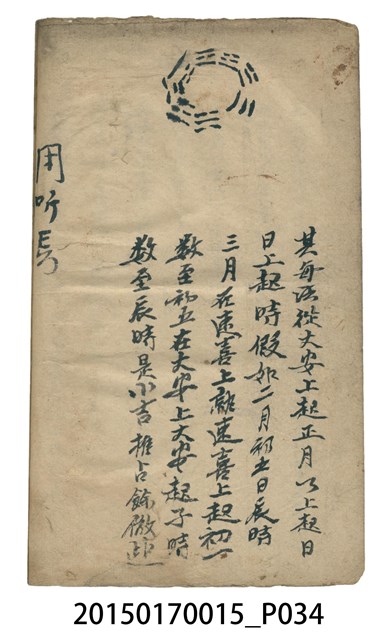 其每法從大安上起正月以上起日
日上起時假如二月初五日辰時
三月在速喜上離速喜上起初一
数至初五在大安上大安起子時
数至辰時是小吉推占餘倣
用听
20150170015_P034